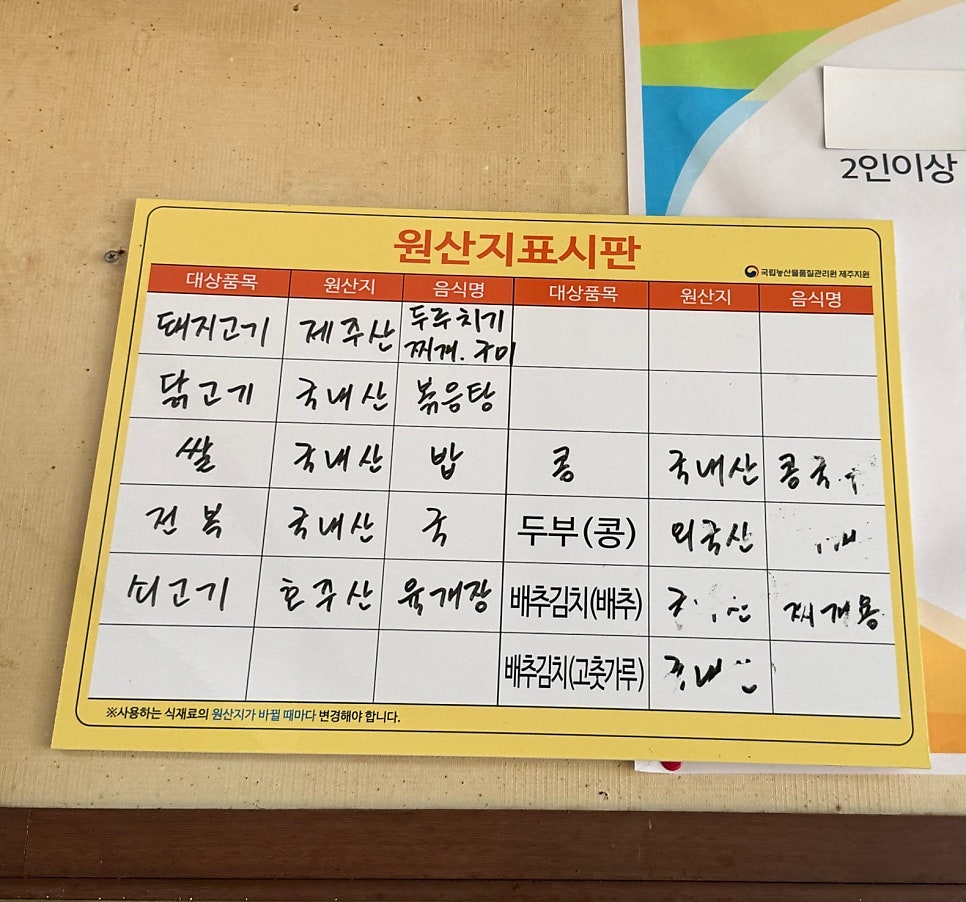 2인이상
원산지표시판
국립농산물품질관리원 제주지원
대상품목 원산지 음식명 대상품목 원산지 음식명
돼지고기 제주산 두루치기
찌개. 구이
닭고기 국내산 볶음탕
쌀 국내산 밥 콩 국내산 콩국
전복 국내산 국 두부(콩) 외국산
쇠고기 호주산 육개장 배추김치(배추) 찌개용
배추김치(고춧가루) 국내산
※사용하는 식재료의 원산지가 바뀔 때마다 변경해야 합니다.